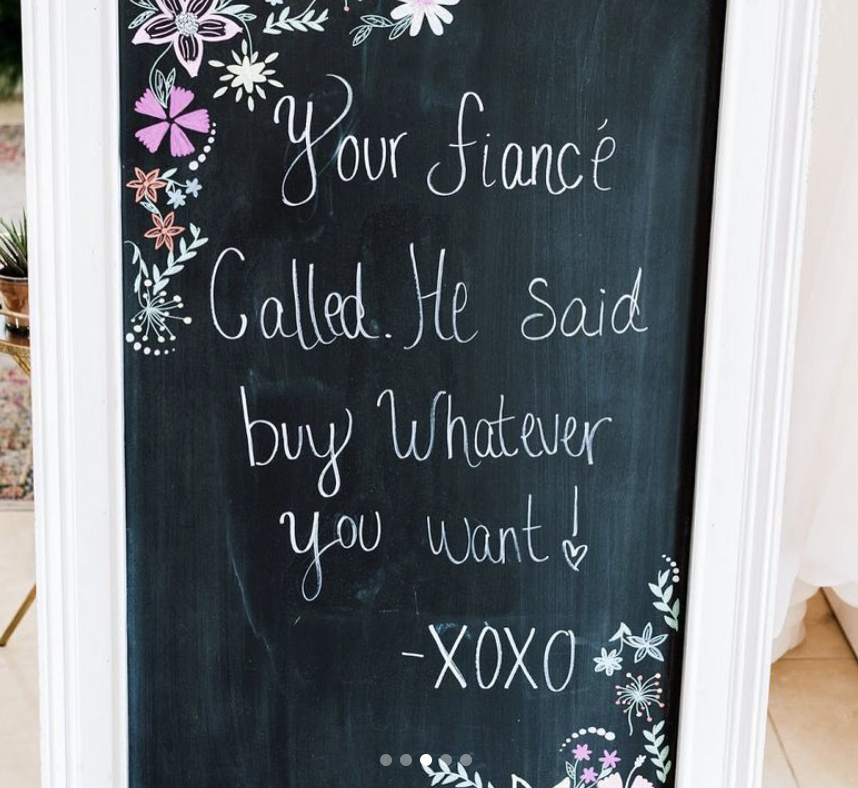 Your fiancé
Called. He said
buy Whatever
you want!
-XOXO